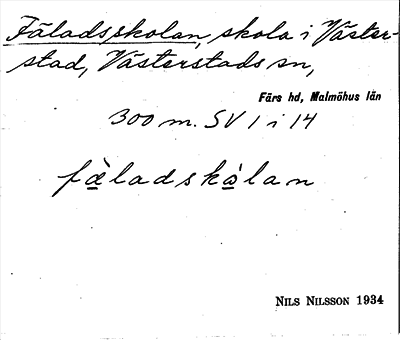 Fäladsskolan, skola i Väster-
stad, Västerstads sn,
Färs hd, Malmöhus län
300 m. SV 1 i 14
fä̀ladskå̀lan
NILS NILSSON 1934